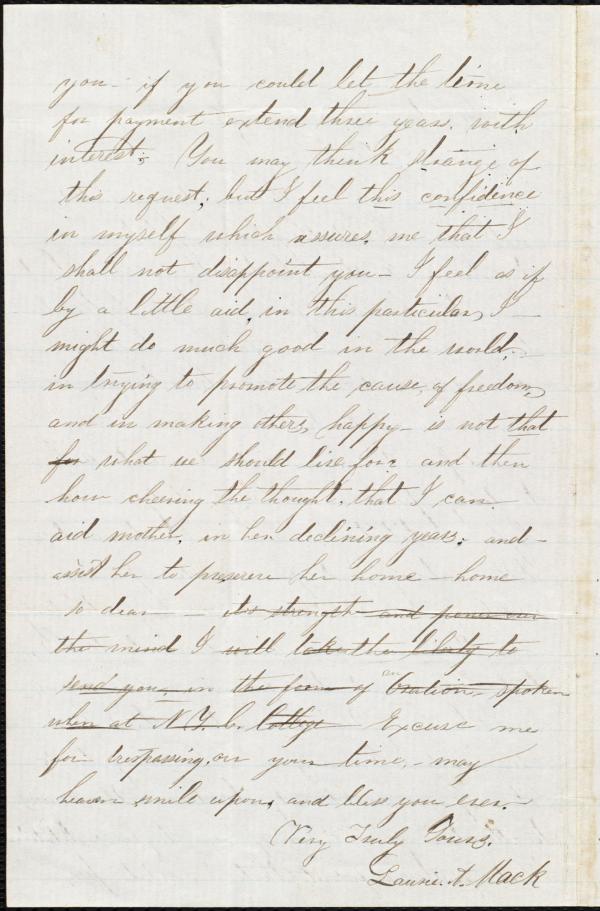 you - if you could let the time
for payment extend three years. with
interest; You may think strange of
this request; but I feel this confidence
in myself which assures me that I
shall not disappoint you - I feel as if
by a little aid, in this particular, I -
might do much good in the world,
in trying to promote the cause, of freedom,
and in making others, happy - is not that
for what we should live for? and then
how cheering the thought, that I can
aid mother, in her declining years; and -
assist her to preserve her home - home
so dear - its strength and power over
the mind I will take the liberty to
send you, in the form of an Oration - spoken
when at N.Y. C. College Excuse me
for trespassing, on your time, - may
heaven smile upon, and bless you ever. -
Very Truly Yours.
A. Mack